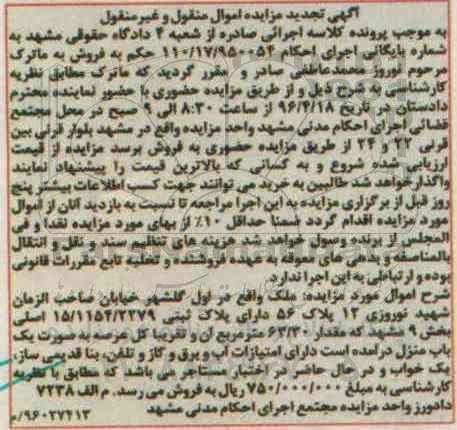 آگهی تجدید مزایده اموال منقول و غیرمنقول
به موجب پرونده کلاسه اجرائی صادره از شعبه ۴ دادگاه حقوقی مشهد به
شماره بایگانی اجرای احکام ۱۱۰/۱۷/۹۵۰۰۵۴ حکم به فروش به ماترک
مرحوم نوروز محمدعاطفی صادر و مقرر گردید که ماترک مطابق نظریه
کارشناسی به شرح ذیل و از طریق مزایده حضوری با حضور نماینده محترم
دادستان در تاریخ ۹۶/۴/۱۸ از ساعت ۸:۳۰ الی ۹ صبح در محل مجتمع
قضائی اجرای احکام مدنی مشهد واحد مزایده واقع در مشهد بلوار قرنی بین
قرنی ۲۲ و ۲۴ از طریق مزایده حضوری به فروش برسد مزایده از قیمت
ارزیابی شده شروع و به کسانی که بالاترین قیمت را پیشنهاد نمایند
واگذار خواهد شد طالبین به خرید می توانند جهت کسب اطلاعات بیشتر پنج
روز قبل از برگزاری مزایده به این اجرا مراجعه تا نسبت به بازدید آنان از اموال
مورد مزایده اقدام گردد ضمنا حداقل ۱۰٪ از بهای مورد مزایده نقدا و فی
المجلس از برنده وصول خواهد شد هزینه های تنظیم سند و نقل و انتقال
بالمناصفه و بدهی های معوقه به عهده فروشنده و تخلیه تابع مقررات قانونی
بوده و ارتباطی به این اجرا ندارد.
شرح اموال مورد مزایده: ملک واقع در اول گلشهر خیابان صاحب الزمان
شهید نوروزی ۱۲ پلاک ۵۶ دارای پلاک ثبتی ۱۵/۱۱۵۴/۲۲۷۹ اصلی
بخش ۹ مشهد که مقدار ۶۳/۳۰ مترمربع آن و تقریبا کل عرصه به صورت یک
باب منزل درآمده است دارای امتیازات آب و برق و گاز و تلفن، بنا قدیمی ساز،
یک خواب و در حال حاضر در اختیار مستاجر می باشد که مطابق با نظریه
کارشناسی به مبلغ ۷۵۰/۰۰۰/۰۰۰ ریال به فروش می رسد. م الف ۷۲۳۸
دادورز واحد مزایده مجتمع اجرای احکام مدنی مشهد
۹۶۰۲۷۴۱۳/م